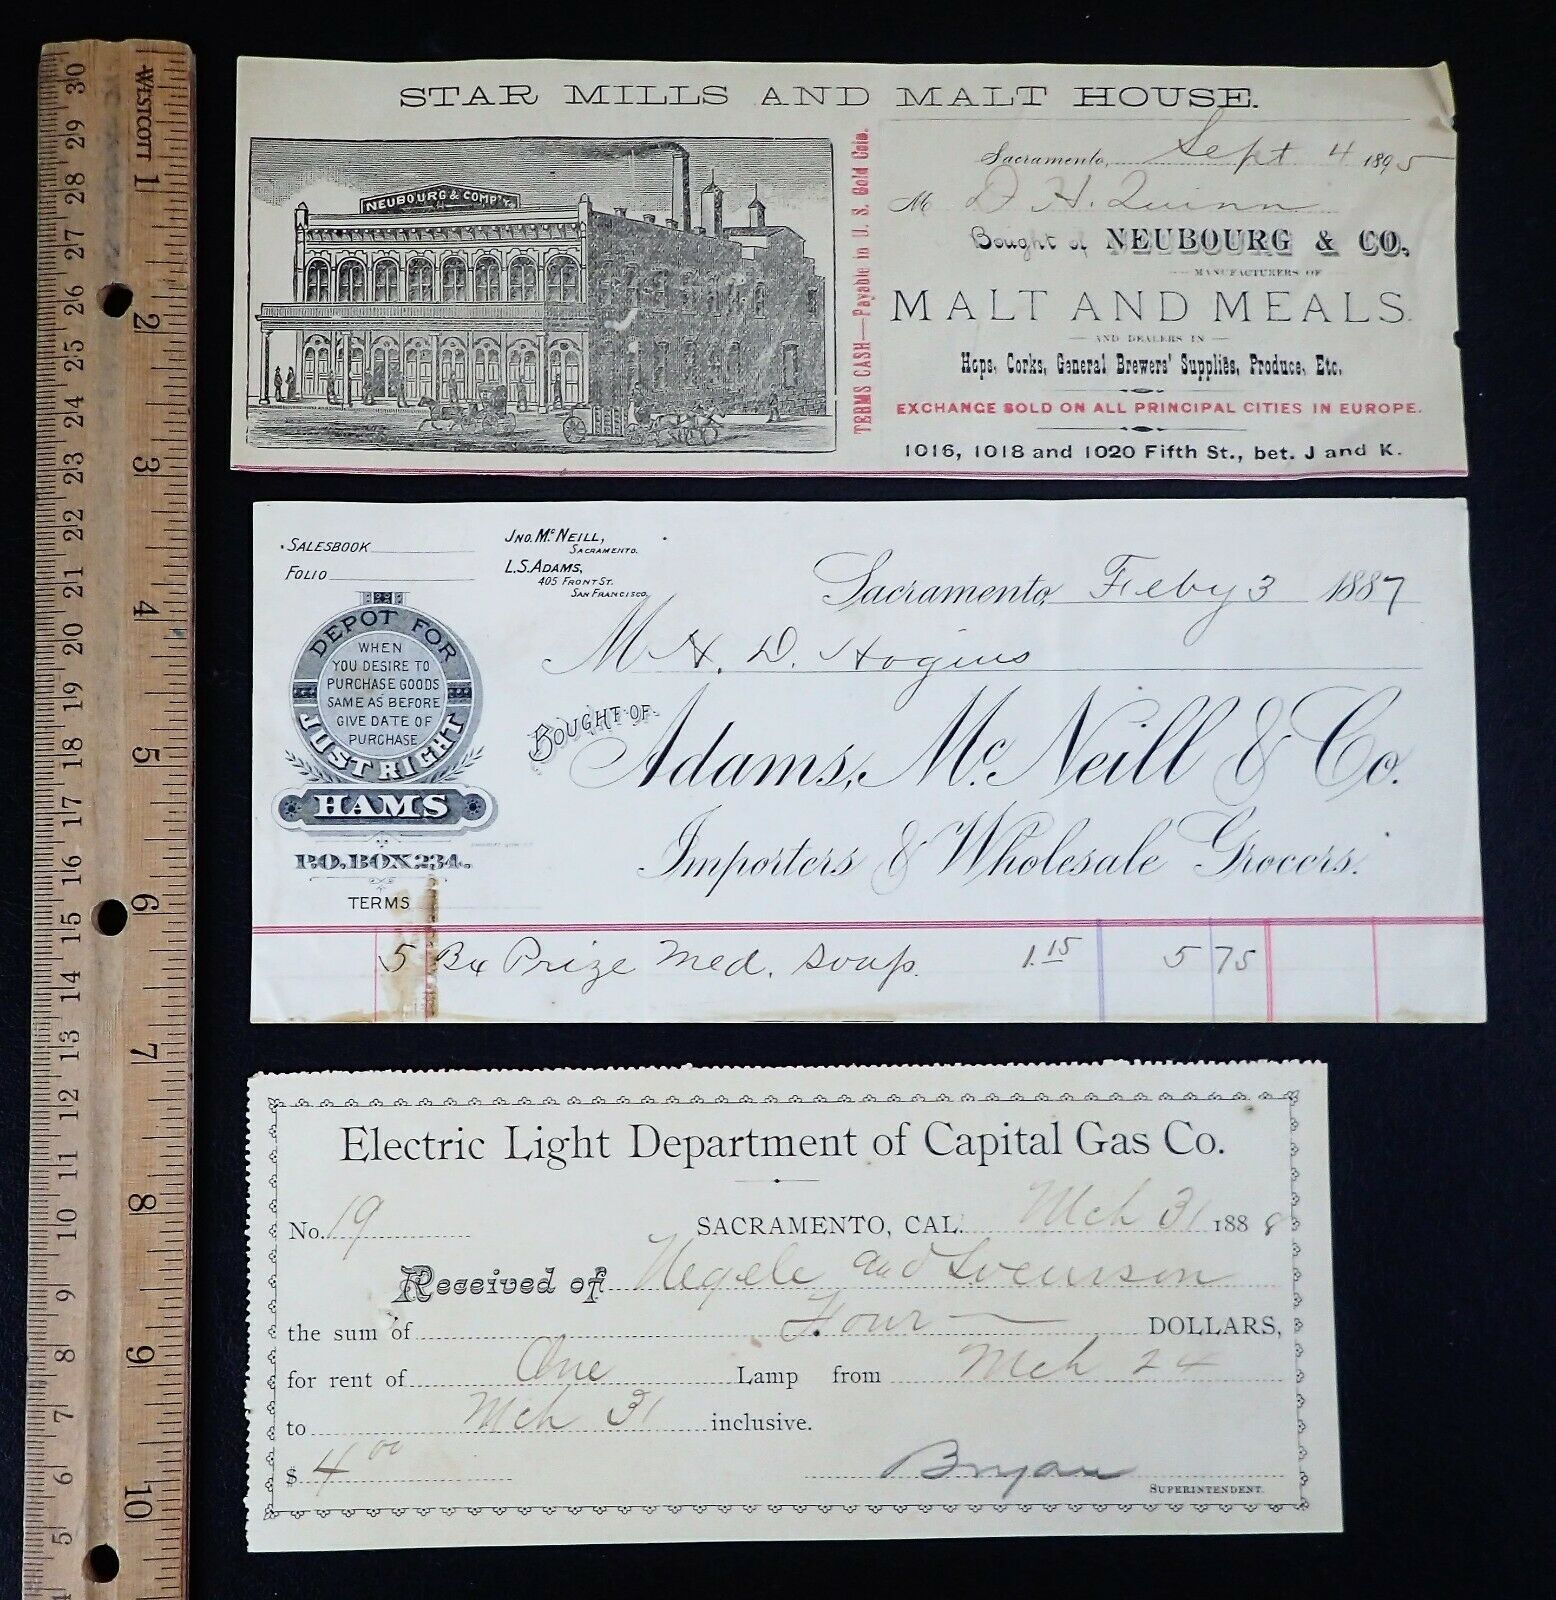 WESTCOTT
30 29 28 27 26 25 24 23 22 21 20 19 18 17 16 15 14 13 12 11 10 9 8 7 6 5
1 2 3 4 5 6 7 8 9 10
STAR MILLS AND MALT HOUSE.
NEUBOURG & COMP'Y.
TERMS CASH—Payable in U. S. Gold Coin.
Sacramento, Sept 4 1895
M D H. Quinn
Bought of NEUBOURG & CO.,
MANUFACTURERS OF
MALT AND MEALS.
AND DEALERS IN
Hops, Corks, General Brewers' Supplies, Produce, Etc.
EXCHANGE SOLD ON ALL PRINCIPAL CITIES IN EUROPE.
1016, 1018 and 1020 Fifth St., bet. J and K.
SALESBOOK
FOLIO
JNO. McNEILL,
SACRAMENTO.
L.S. ADAMS,
405 FRONT ST.
SAN FRANCISCO.
Sacramento, Feby 3 1887
M H. D. Hogins
BOUGHT OF
Adams, McNeill & Co.
Importers & Wholesale Grocers.
DEPOT FOR
WHEN
YOU DESIRE TO
PURCHASE GOODS
SAME AS BEFORE
GIVE DATE OF
PURCHASE
JUST RIGHT
HAMS
P.O. BOX 234.
TERMS
5 Bx Prize Med. Soap. 1.15 5 75
Electric Light Department of Capital Gas Co.
No. 19 SACRAMENTO, CAL. Mch 31 1888
Received of Negele and Svenson
the sum of Four DOLLARS,
for rent of One Lamp from Mch 24
to Mch 31 inclusive.
$ 4 00 Bryan
SUPERINTENDENT.